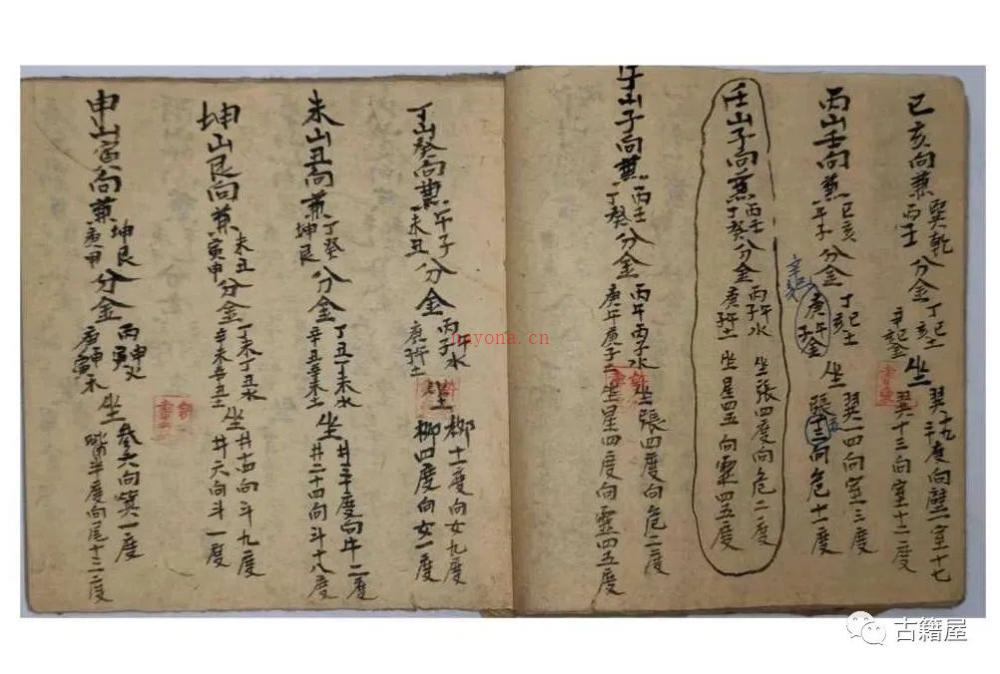 巳亥向兼巽乾丙壬分金丁巳土辛巳金坐翼十九度向壁一室十七
翼十三向室十二度
丙山壬向兼巳亥午子分金丁巳亥土庚午子金坐翼一四向室三度
張十三向危十一度
壬山子向兼丙壬丁癸分金丙午子水庚子午土坐張四度向危二度
坐星四五向虛四五度
午山子向兼丙壬丁癸分金丙午丙子水坐張四度向危二度
庚午庚子土坐星四度向虛四五度
丁山癸向兼午子未丑分金丙午子水庚子午土坐柳十一度向女九度
柳四度向女一度
未山丑向兼丁癸坤艮分金丁丑丁未水辛丑辛未土坐井三十度向牛二度
井二十四向斗十八度
坤山艮向兼未丑寅申分金丁未丁丑水辛未辛丑土坐井十四向斗九度
井六向斗一度
申山寅向兼坤艮庚甲分金丙申丙寅火庚申庚寅木坐參六向箕一度
觜半度向尾十三度
nayona.cn
古籍屋